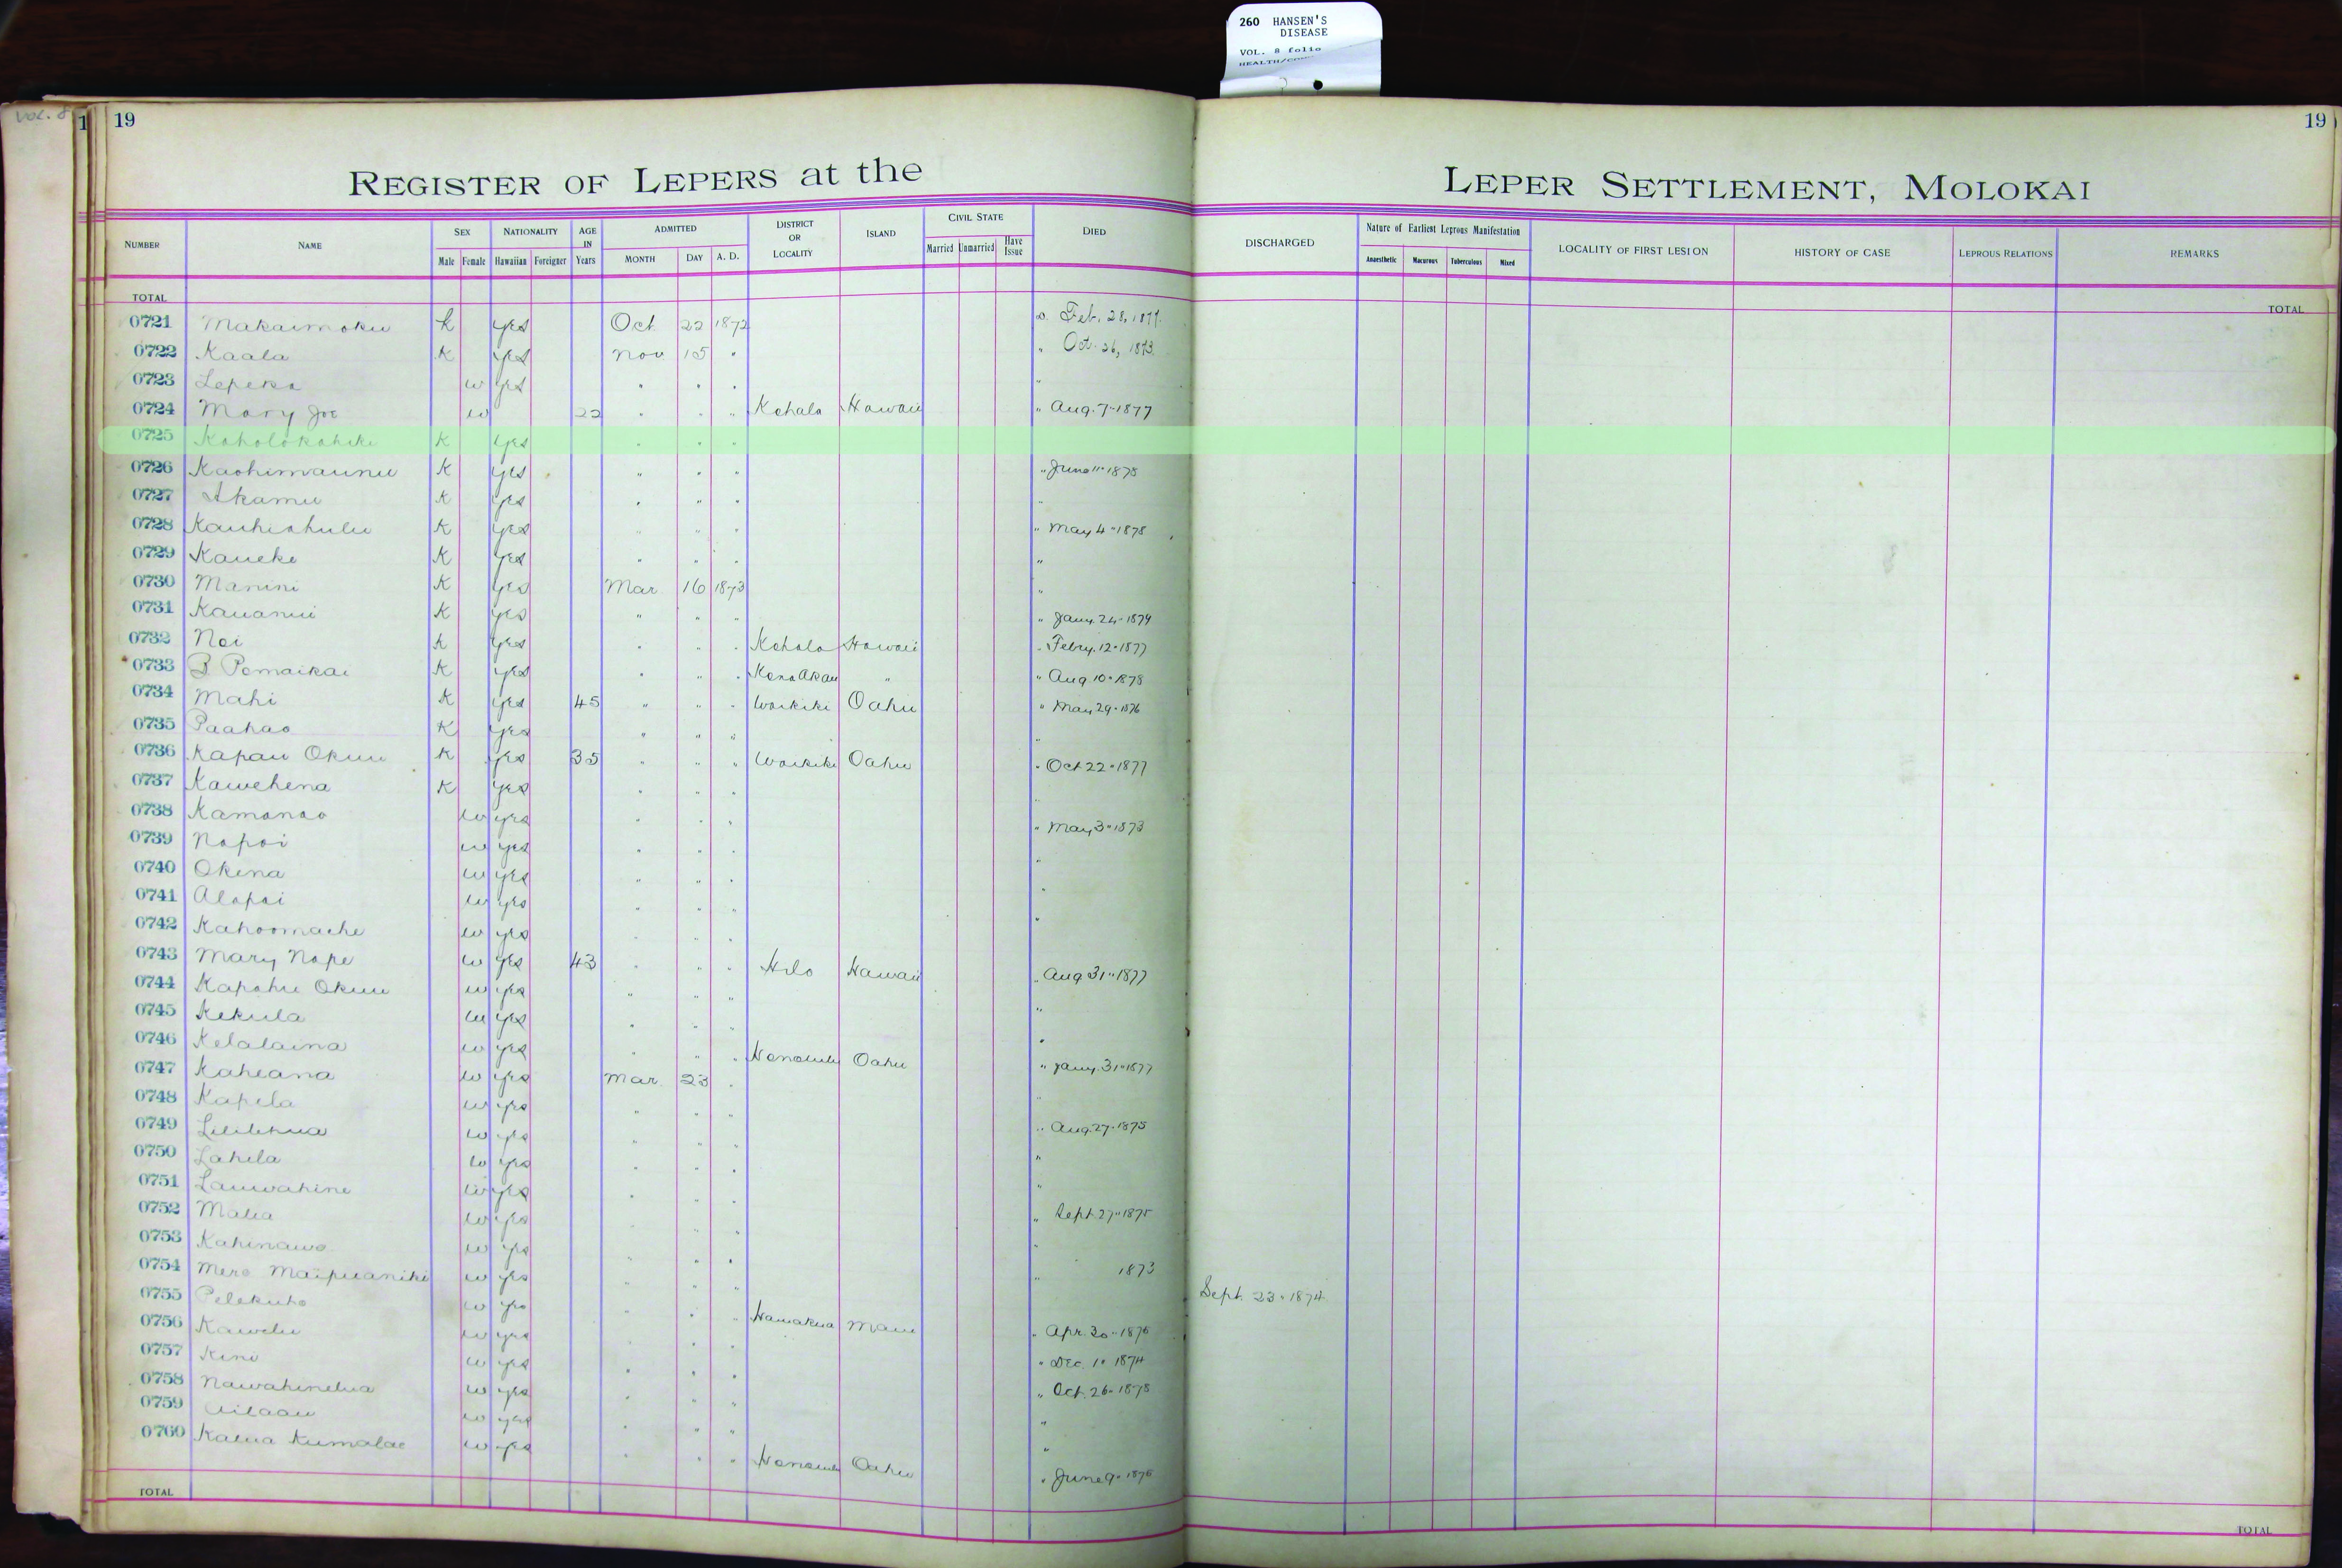 260 HANSEN'S
DISEASE
VOL. 8 folio
Vol. 8
1
19
19
REGISTER OF LEPERS at the LEPER SETTLEMENT, MOLOKAI
NUMBER NAME SEX NATIONALITY AGE IN Years ADMITTED DISTRICT OR LOCALITY ISLAND CIVIL STATE DIED DISCHARGED Nature of Earliest Leprous Manifestation LOCALITY OF FIRST LESION HISTORY OF CASE LEPROUS RELATIONS REMARKS
Male Female Hawaiian Foreigner MONTH DAY A. D. Married Unmarried Have Issue Anaesthetic Macurous Tuberculous Mixed
TOTAL TOTAL
0721 Makaimoku K yes Oct 22 1872 Feb. 28, 1877.
0722 Kaala K yes Nov 15 " " Oct. 26, 1873.
0723 Lepeka w yes " " " "
0724 Mary Joe w 22 " " " Kohala Hawaii " Aug. 7" 1877
0725 Koholokahiki K yes " " "
0726 Kaohimaunu K yes " " " " June 11" 1875
0727 Akamu K yes " " " "
0728 Kauhiahulu K yes " " " " May 4" 1875
0729 Kaueke K yes " " " "
0730 Manini K yes Mar 16 1873 "
0731 Kauanui K yes " " " " Jany. 24" 1874
0732 Noi K yes " " " Kohala Hawaii " Febry. 12" 1877
0733 B Pomaikai K yes " " " Kona Akau " " Aug 10" 1878
0734 Mahi K yes 45 " " " Waikiki Oahu " May 29" 1876
0735 Paahao K yes " " " "
0736 Kapau Okuu K yes 35 " " " Waikiki Oahu " Oct 22" 1877
0737 Kawehena K yes " " " "
0738 Kamanao w yes " " " " May 3" 1873
0739 Napoi w yes " " " "
0740 Okina w yes " " " "
0741 Alapai w yes " " " "
0742 Kahoomache w yes " " "
0743 Mary Nape w yes 43 " " " Hilo Hawaii " Aug 31" 1877
0744 Kapahu Okuu w yes " " " "
0745 Kekula w yes " " " "
0746 Kelalaina w yes " " " Honolulu Oahu " Jany. 31" 1877
0747 Kaheana w yes Mar. 23 " "
0748 Kapela w yes " " " " Aug. 27" 1875
0749 Lililehua w yes " " " "
0750 Lahela w yes " " " "
0751 Lauwahine w yes " " " " Sept 27" 1875
0752 Malia w yes " " " "
0753 Kahinawe w yes " " " " 1873
0754 Mere Maipuaniki w yes " " " Sept. 23" 1874
0755 Pelekuho w yes " " " Hamakua Maui " Apr. 30" 1876
0756 Kawelu w yes " " " " Dec. 1" 1874
0757 Kini w yes " " " " Oct. 26" 1875
0758 Nawahinelua w yes " " " "
0759 Ailaau w yes " " " "
0760 Kalua Kumalae w yes " " " Honolulu Oahu " June 9" 1875
TOTAL TOTAL